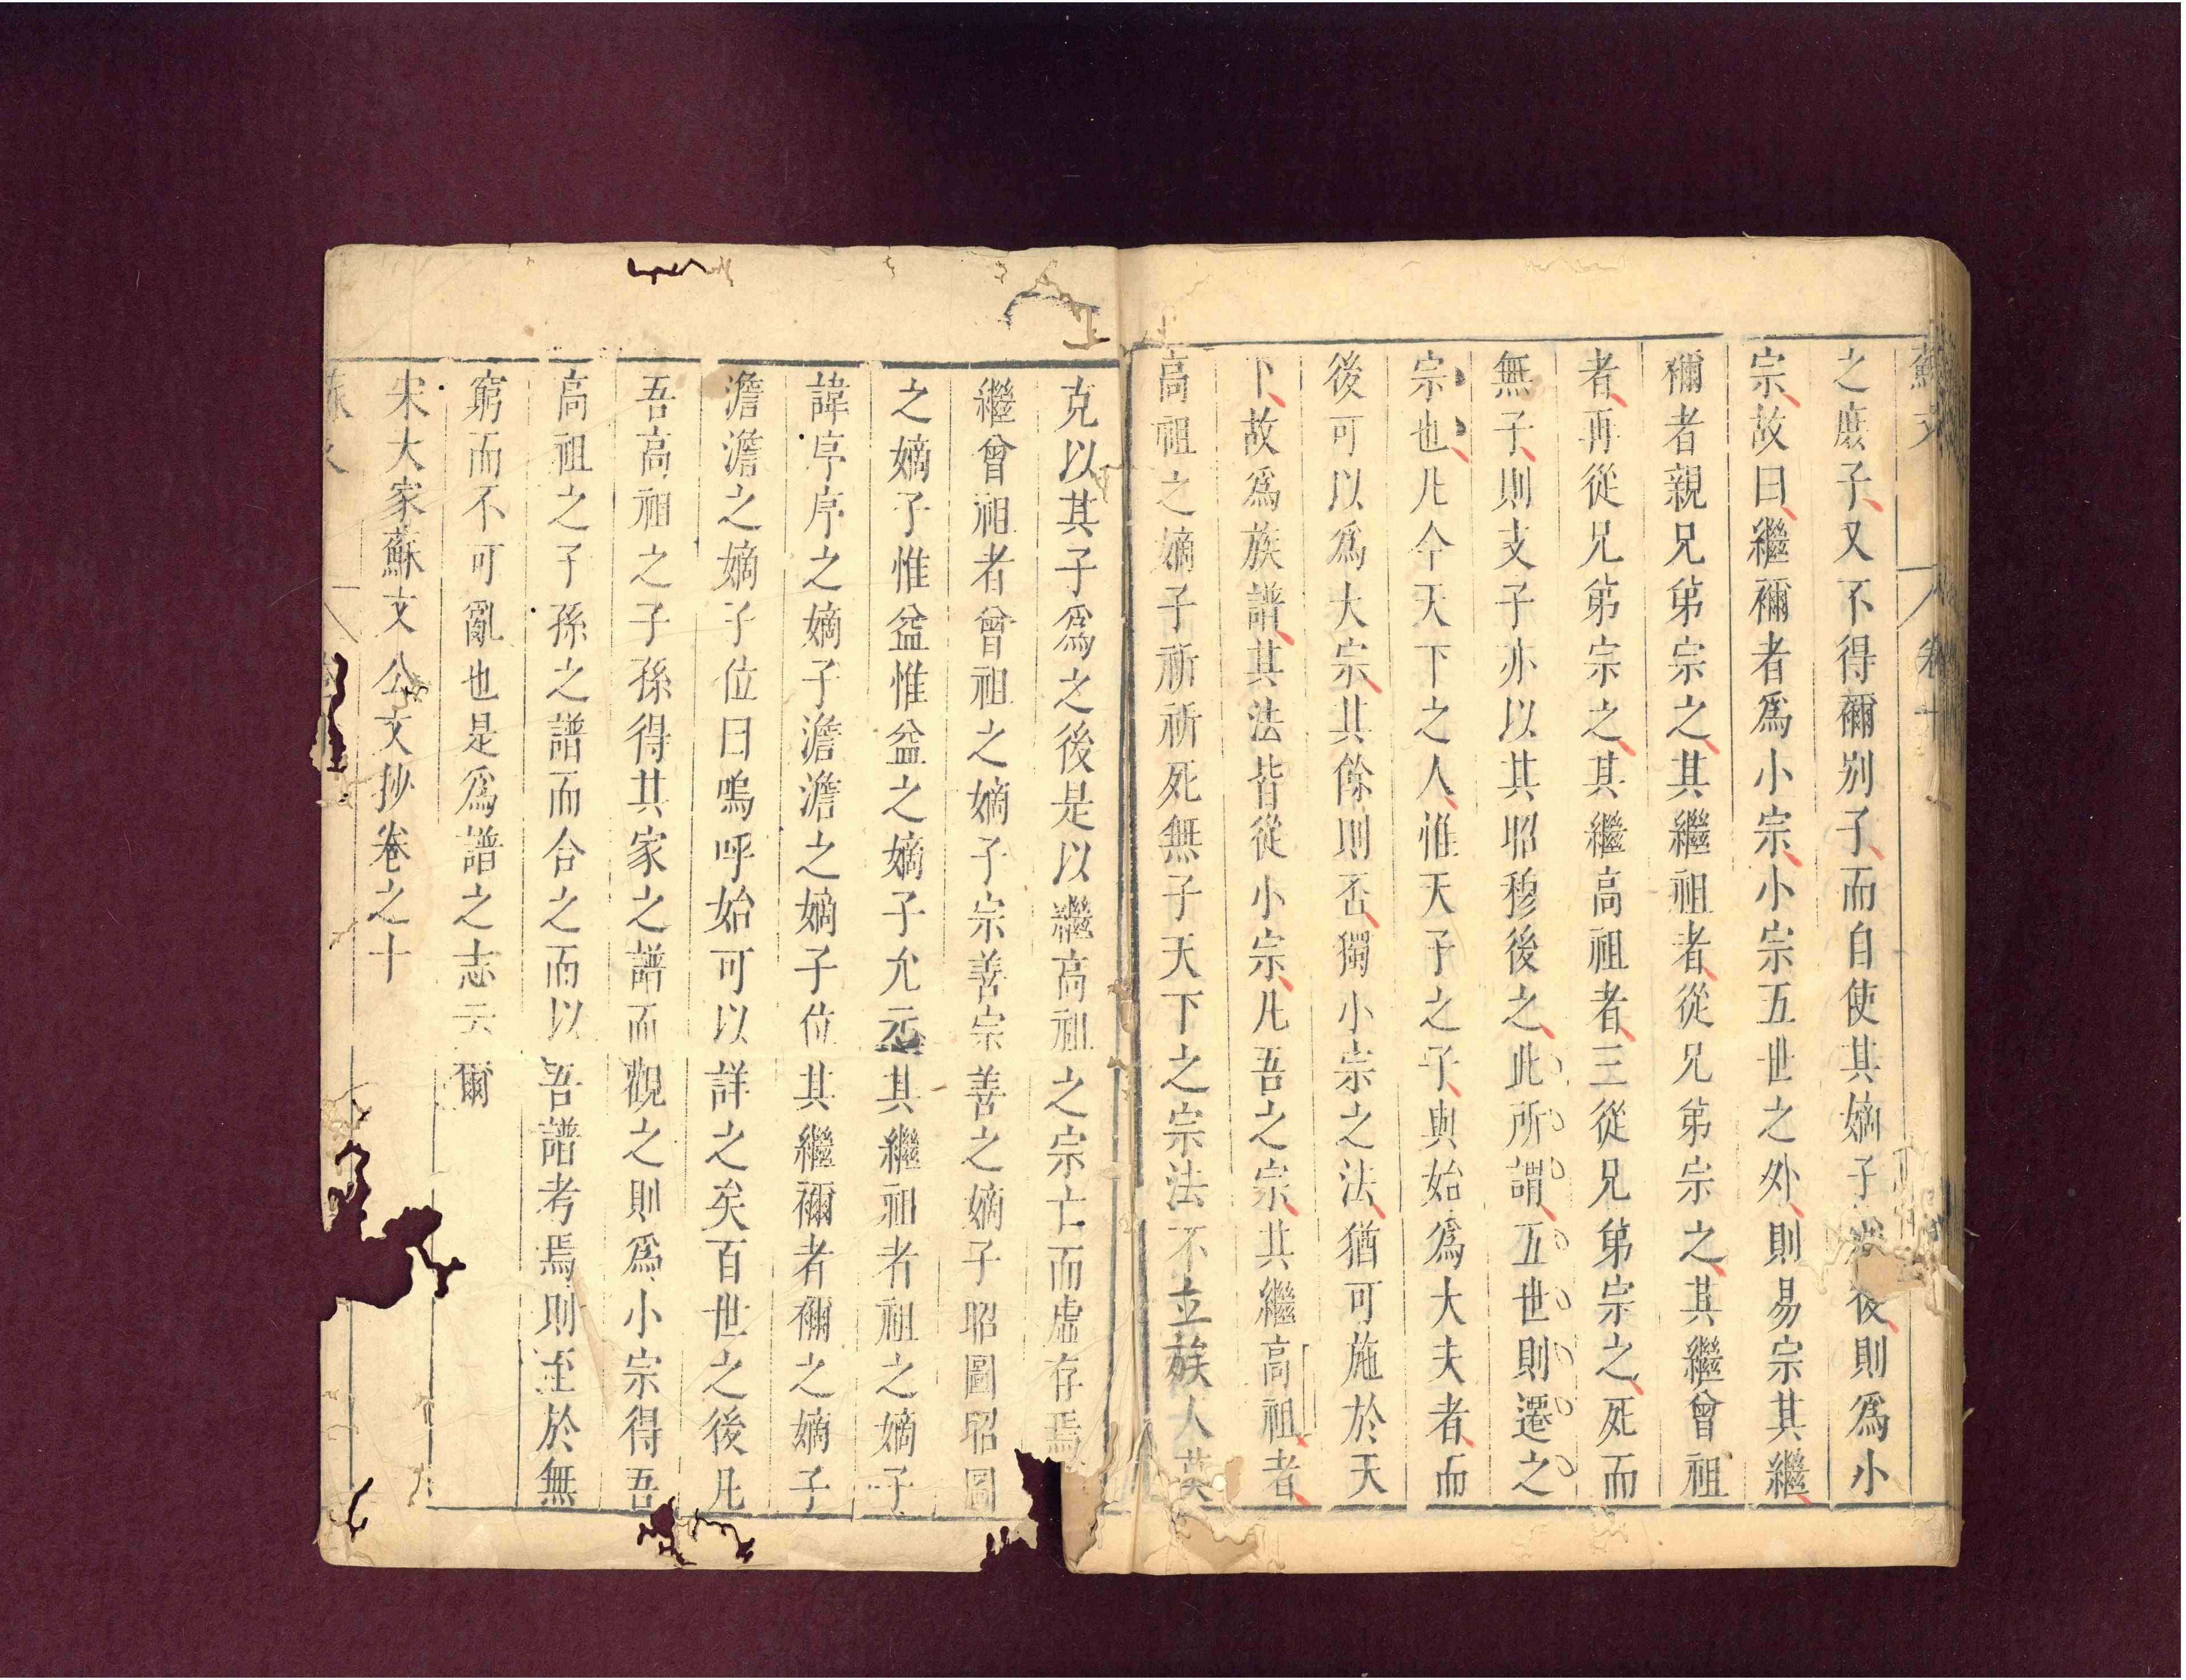 蘇文 卷十
之庶子又不得禰別子而自使其嫡子後則爲小
宗故曰繼禰者爲小宗小宗五世之外則易宗其繼
禰者親兄弟宗之其繼祖者從兄弟宗之其繼曾祖
者再從兄弟宗之其繼高祖者三從兄弟宗之死而
無子則支子亦以其昭穆後之此所謂五世則遷之
宗也凡今天下之人惟天子之子與始爲大夫者而
後可以爲大宗其餘則否獨小宗之法猶可施於天
下故爲族譜其法皆從小宗凡吾之宗其繼高祖者
高祖之嫡子祈祈死無子天下之宗法不立族人莫
克以其子爲之後是以繼高祖之宗亡而虛存焉
繼曾祖者曾祖之嫡子宗善宗善之嫡子昭圖昭圖
之嫡子惟益惟益之嫡子允元其繼祖者祖之嫡子
諱序序之嫡子澹澹之嫡子位其繼禰者禰之嫡子
澹澹之嫡子位曰嗚呼始可以詳之矣百世之後凡
吾高祖之子孫得其家之譜而觀之則爲小宗得吾
高祖之子孫之譜而合之而以吾譜考焉則至於無
窮而不可亂也是爲譜之志云爾
宋大家蘇文公文抄卷之十